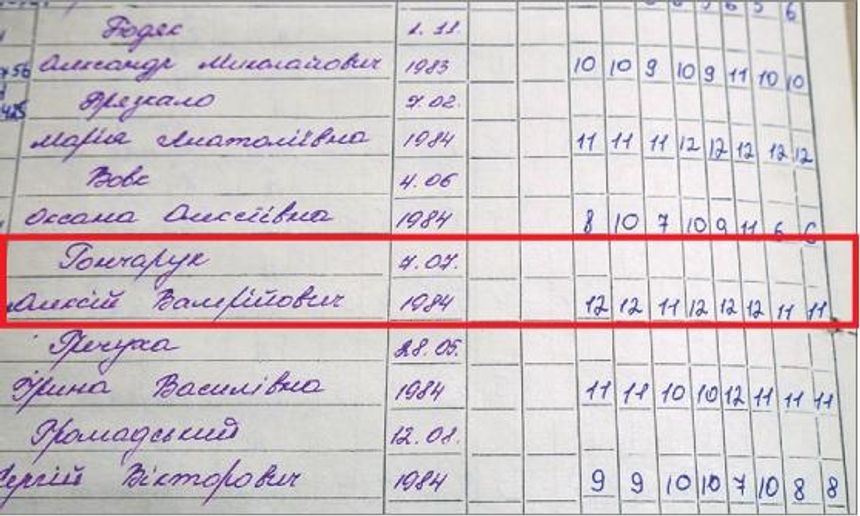 6 5 6
Бодяк 1.11.
756 Олександр Миколайович 1983 10 10 9 10 9 11 10 10
Брязкало 7.02.
425 Марія Анатоліївна 1984 11 11 11 12 12 12 12 12
Вовк 4.06
Оксана Олексіївна 1984 8 10 7 10 9 11 6 6
Гончарук 7.07.
Олексій Валерійович 1984 12 12 11 12 12 12 11 11
Гречуха 28.05.
Ірина Василівна 1984 11 11 10 10 12 11 11 11
Громадський 12.08.
Сергій Вікторович 1984 9 9 10 10 7 10 8 8